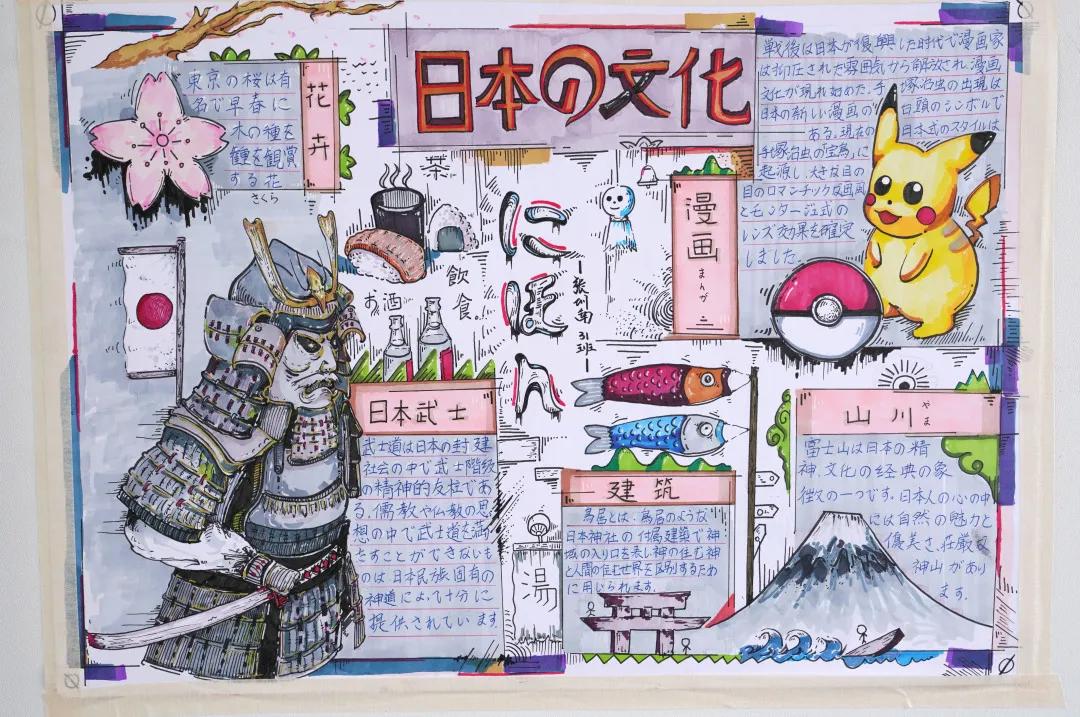 日本の文化
東京の桜は有
名で早春に
木の種を
種を観賞
する花
さくら
花卉
茶
お酒
飲食
にほん
31班
漫画
まんが
戦後は日本が復興した時代で漫画家
は抑圧された雰囲気から解放され漫画
文化が現れ始めた.手塚治虫の出現は
日本の新しい漫画の台頭のシンボルで
ある.現在の日本式のスタイルは
手塚治虫の「宝島」に
起源し.大きな目の
目のロマンチックな画風
とモンタージュ式の
レンズ効果を確定
しました.
日本武士
武士道は日本の封建
社会の中で武士階級
の精神的支柱であ
る.儒教や仏教の思
想の中で武士道を満
たすことができないも
のは日本民族固有の
神道によって十分に
提供されています
建筑
鳥居とは.鳥居のような
日本神社の付属建築で神
域の入り口を表し神の住む神
と人間の住む世界を区別するため
に用いられます.
湯
山川
やま
富士山は日本の精
神.文化の経典の象
徴の一つです.日本人の心の中
には自然の魅力と
優美さ.荘厳な
神山があり
ます.